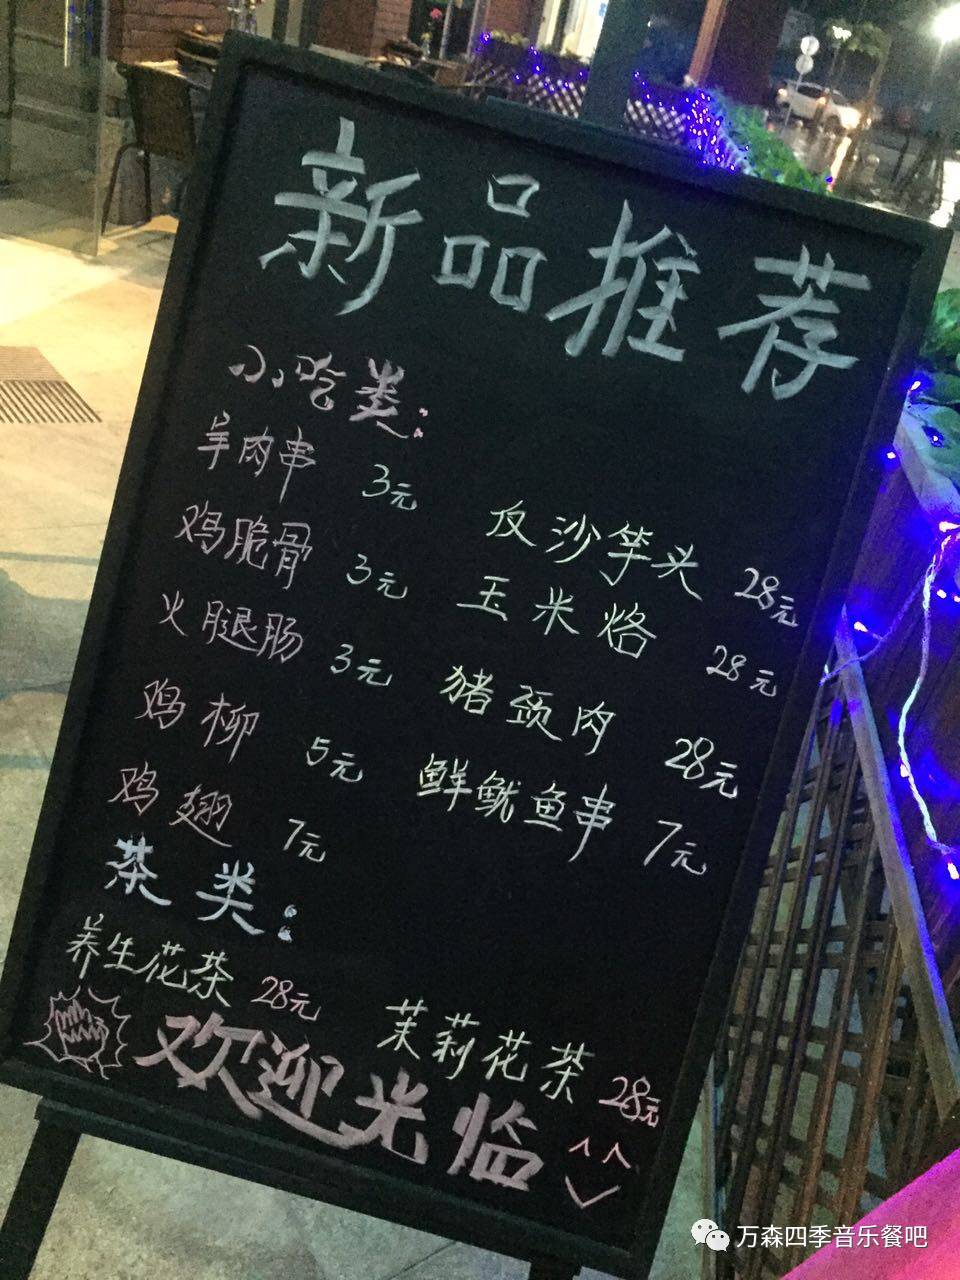 新品推荐
小吃类:
羊肉串 3元 反沙竽头 28元
鸡脆骨 3元 玉米烙 28元
火腿肠 3元 猪颈肉 28元
鸡柳 5元 鲜鱿鱼串 7元
鸡翅 7元
茶类:
养生花茶 28元 茉莉花茶 28元
欢迎光临
万森四季音乐餐吧